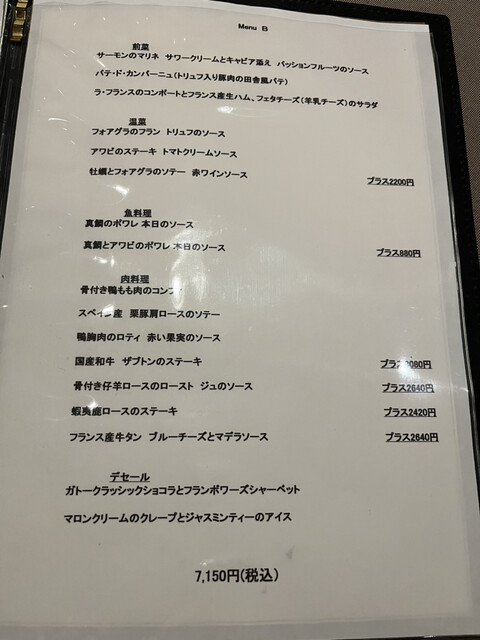 Menu B
前菜
サーモンのマリネ サワークリームとキャビア添え パッションフルーツのソース
パテ・ド・カンパーニュ(トリュフ入り豚肉の田舎風パテ)
ラ・フランスのコンポートとフランス産生ハム、フェタチーズ(羊乳チーズ)のサラダ
温菜
フォアグラのフラン トリュフのソース
アワビのステーキ トマトクリームソース
牡蠣とフォアグラのソテー 赤ワインソース プラス2200円
魚料理
真鯛のポワレ 本日のソース
真鯛とアワビのポワレ 本日のソース プラス880円
肉料理
骨付き鴨もも肉のコンフィ
スペイン産 栗豚肩ロースのソテー
鴨胸肉のロティ 赤い果実のソース
国産和牛 ザブトンのステーキ プラス 080円
骨付き仔羊ロースのロースト ジュのソース プラス2640円
蝦夷鹿ロースのステーキ プラス2420円
フランス産牛タン ブルーチーズとマデラソース プラス2640円
デセール
ガトークラッシックショコラとフランボワーズシャーベット
マロンクリームのクレープとジャスミンティーのアイス
7,150円(税込)